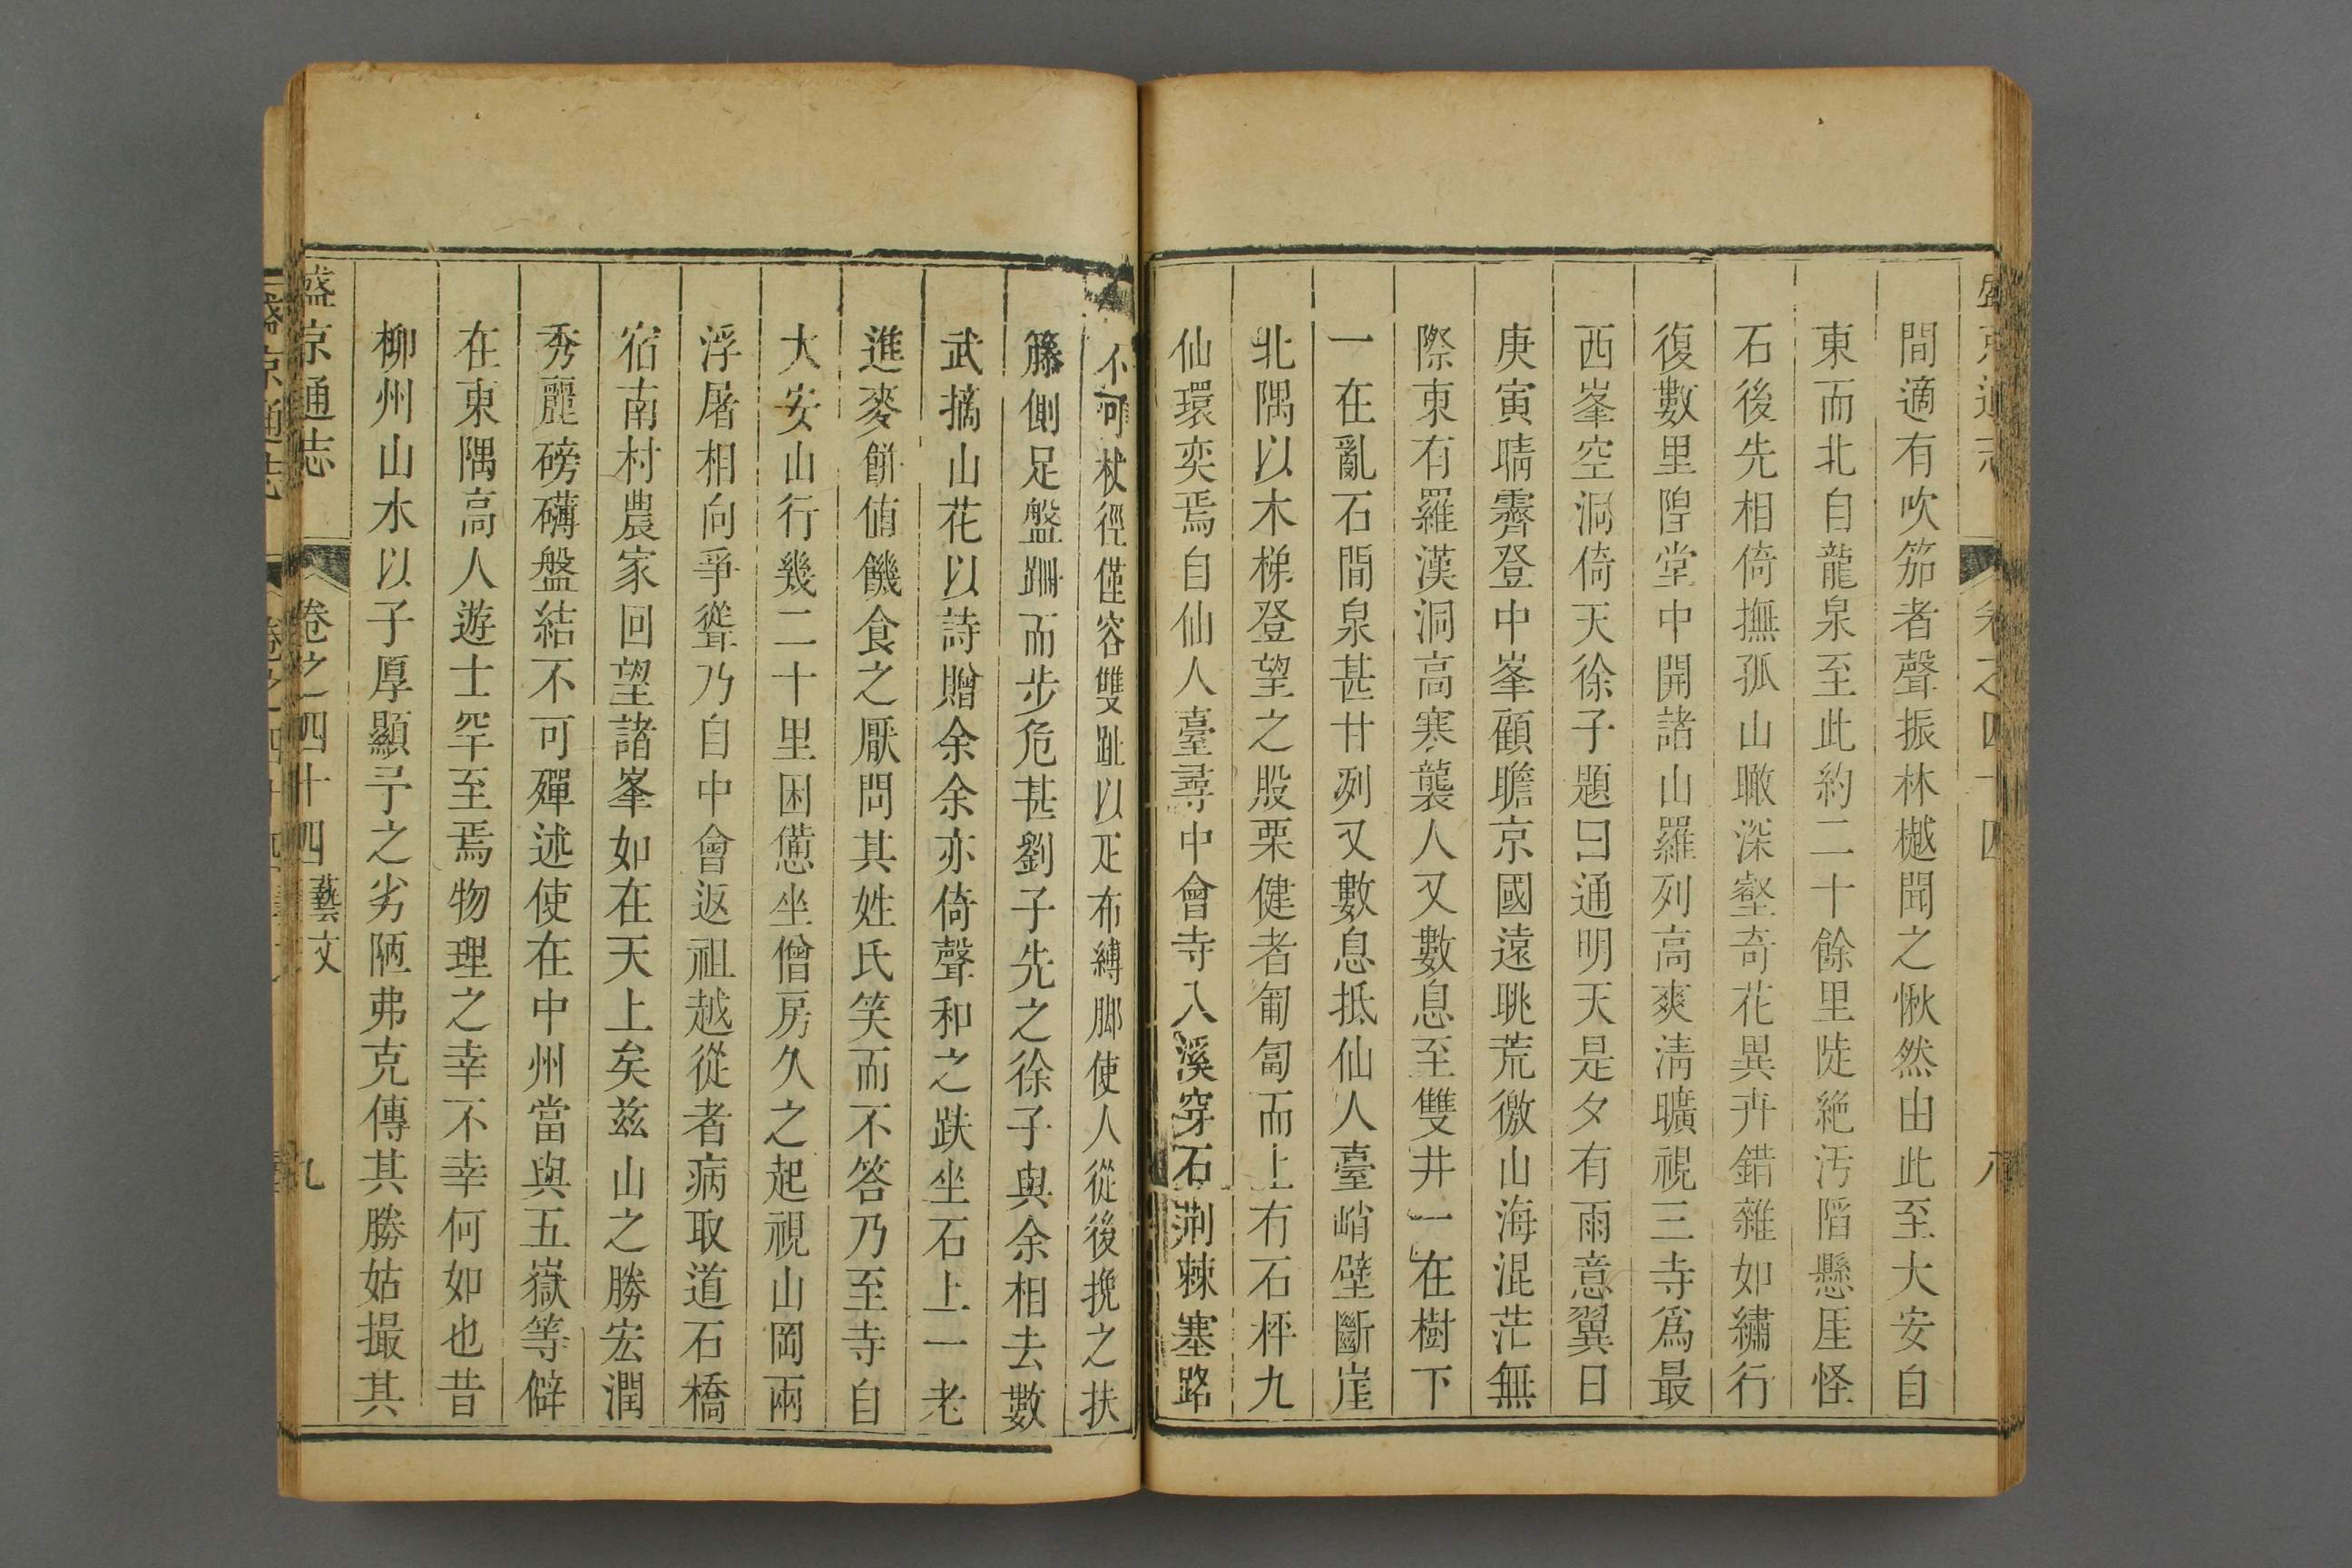 盛京通志 卷之四十四 八
間適有吹笳者聲振林樾聞之愀然由此至大安自
東而北自龍泉至此約二十餘里陡絶汚陷懸厓怪
石後先相倚撫孤山瞰深壑奇花異卉錯雜如繡行
復數里隍堂中開諸山羅列高爽淸曠視三寺爲最
西峯空洞倚天徐子題曰通明天是夕有雨意翼日
庚寅晴霽登中峯顧瞻京國遠眺荒徼山海混茫無
際東有羅漢洞高寒襲人又數息至雙井一在樹下
一在亂石間泉甚甘冽又數息抵仙人臺峭壁斷崖
北隅以木梯登望之股栗健者匍匐而上有石枰九
仙環奕焉自仙人臺尋中會寺入溪穿石荆棘塞路
不可杖徑僅容雙趾以疋布縛脚使人從後挽之扶
籐側足盤跚而步危甚劉子先之徐子與余相去數
武摘山花以詩贈余余亦倚聲和之趺坐石上一老
進麥餅値饑食之厭問其姓氏笑而不答乃至寺自
大安山行幾二十里困憊坐僧房久之起視山岡兩
浮屠相向爭聳乃自中會返祖越從者病取道石橋
宿南村農家回望諸峯如在天上矣茲山之勝宏潤
秀麗磅礴盤結不可殫述使在中州當與五嶽等僻
在東隅高人遊士罕至焉物理之幸不幸何如也昔
柳州山水以子厚顯予之劣陋弗克傳其勝姑撮其
盛京通志 卷之四十四 藝文 九
盛京通志